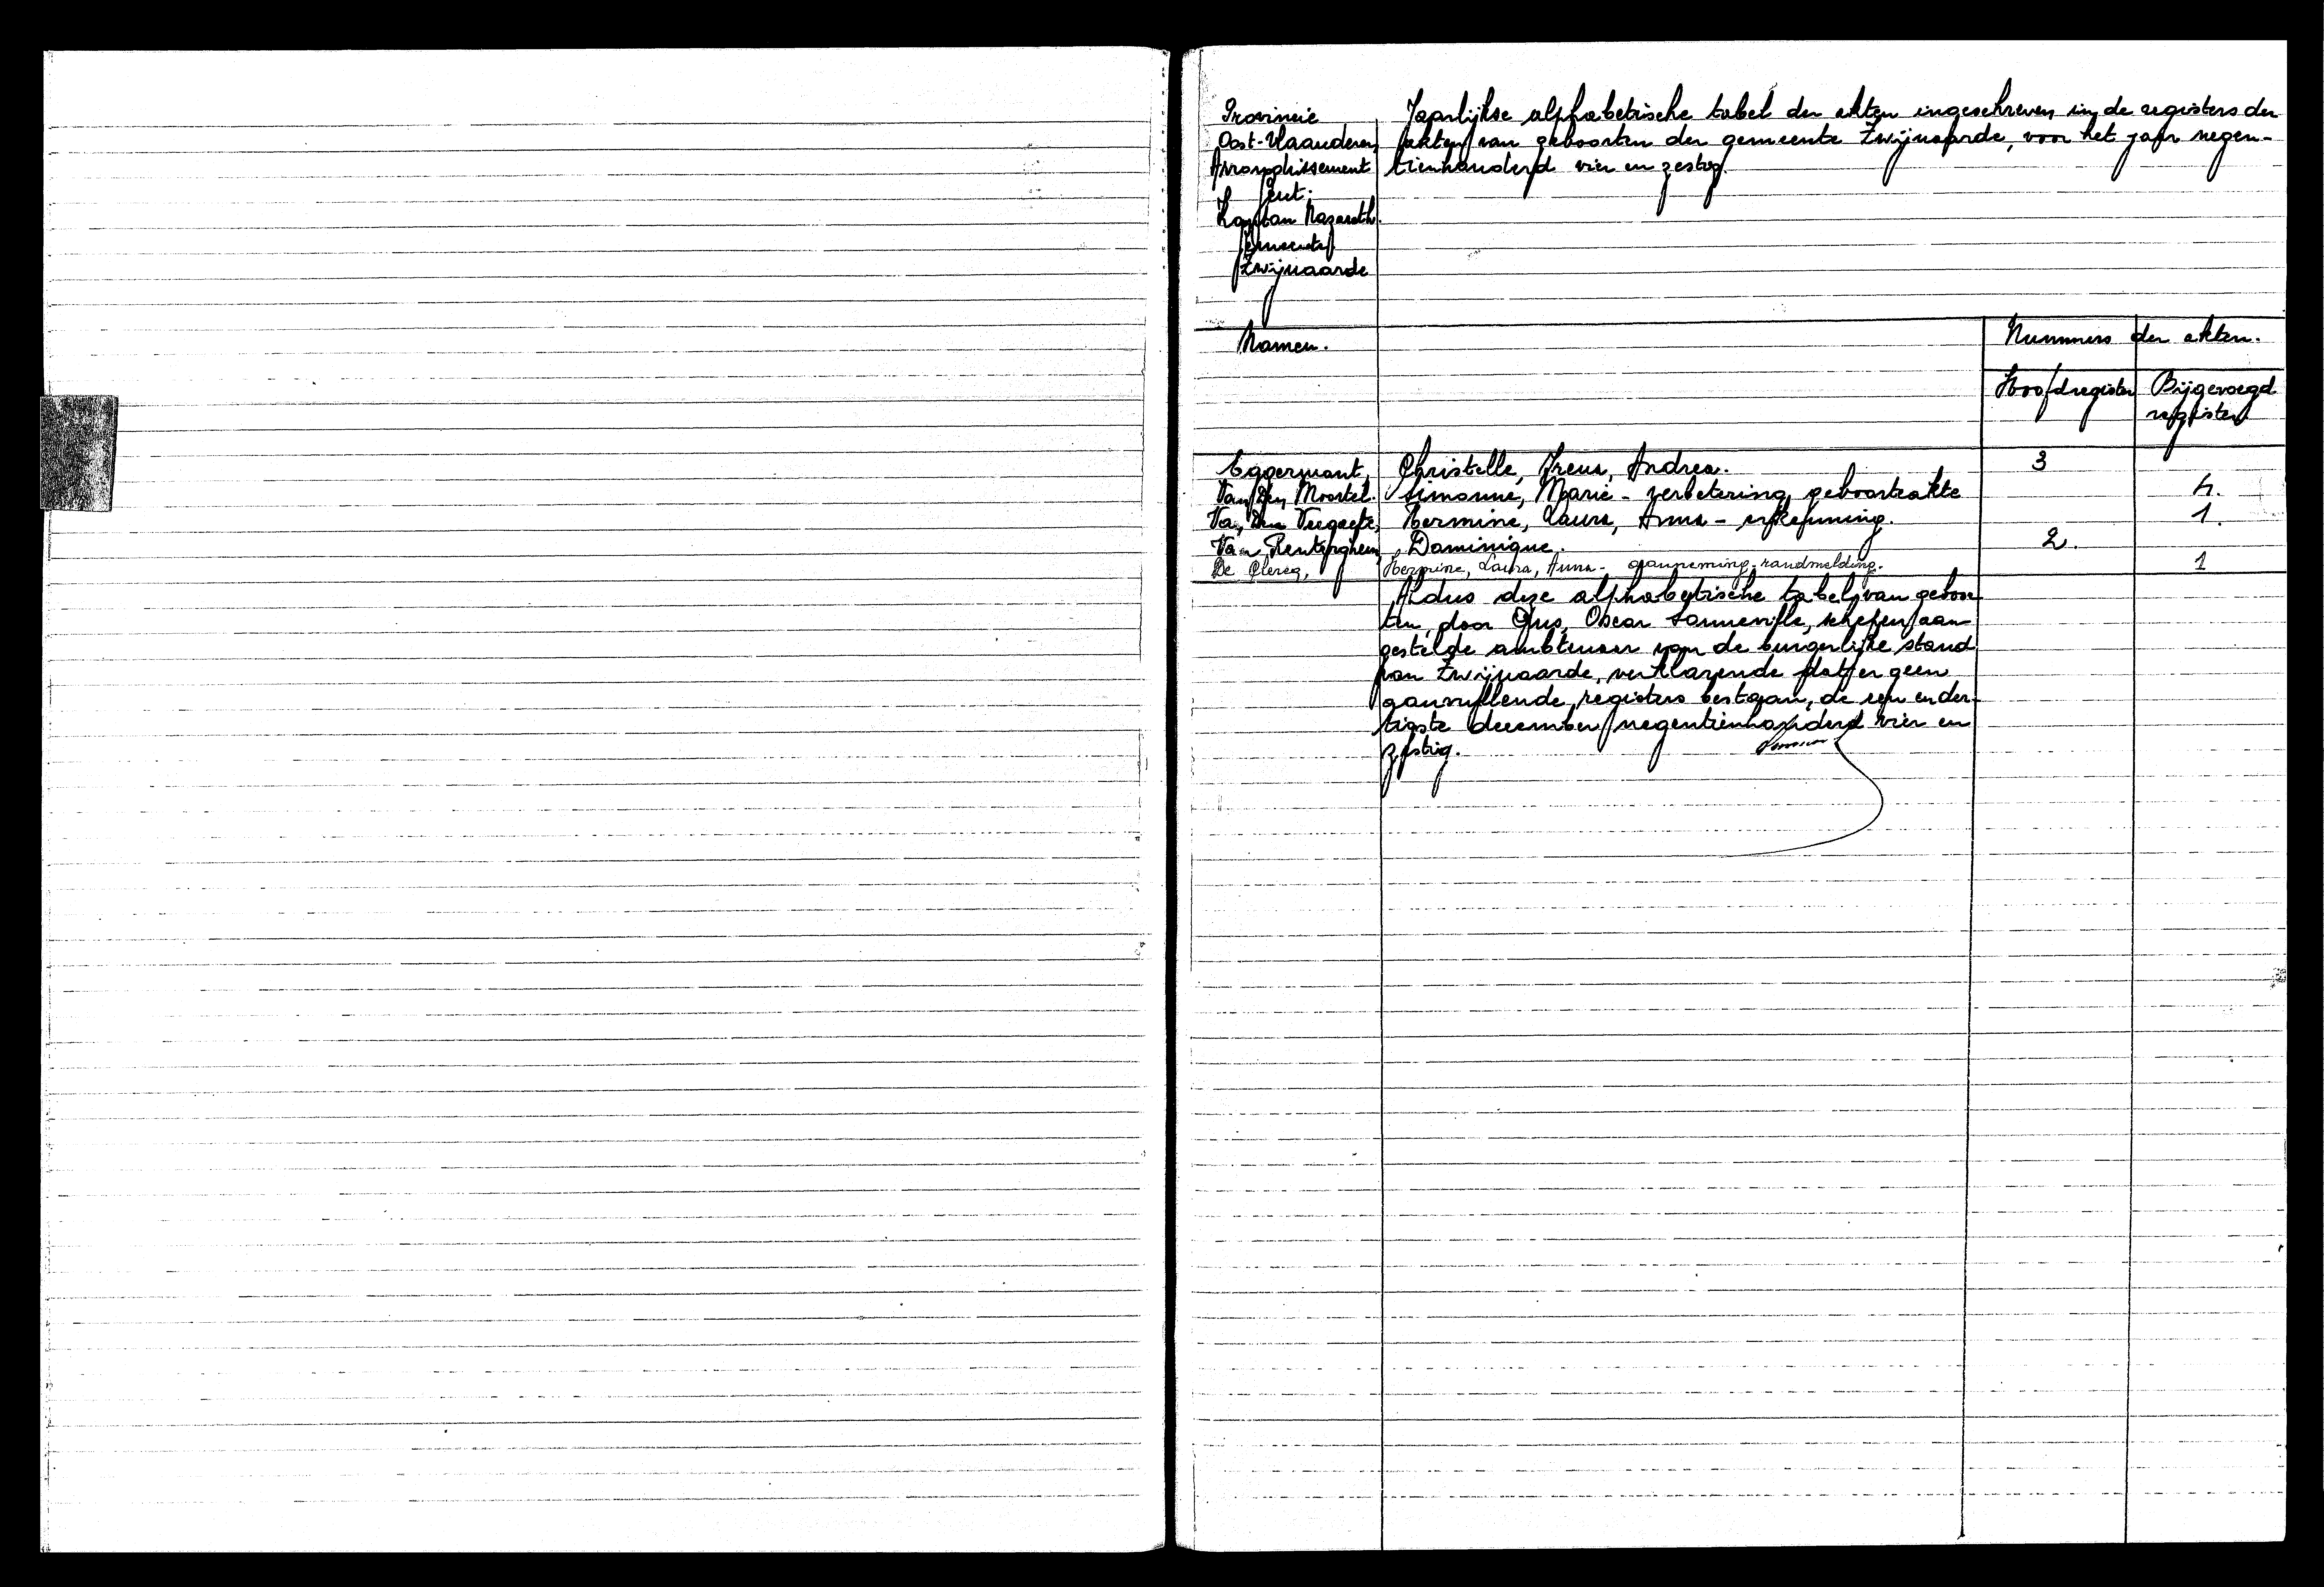 Provincie
Oost-Vlaanderen
Arrondissement
Gent.
Kanton Nazareth.
Gemeente
Zwijnaarde
Jaarlijkse alphabetische tabel der akten ingeschreven in de registers der
akten van geboorten der gemeente Zwijnaarde, voor het jaar negen-
tienhonderd vier en zestig.
Namen.
Nummers der akten.
Hoofdregister Bijgevoegd
register
Eggermont, Christelle, Irena, Andrea. 3
Van Den Moortel. Simonne, Marie - verbetering geboorteakte 4.
Van Den Veegaete, Hermine, Laura, Anna - erkenning. 1.
Van Renterghem, Dominique. 2.
De Clercq, Hermine, Laura, Anna - aanneming-randmelding. 1
Aldus deze alphabetische tabel van geboor
ten, door Ons, Oscar Sonneville, schepen aan
gestelde ambtenaar van de burgerlijke stand
van Zwijnaarde, verklarende dat er geen
aanvullende registers bestaan, de een en der-
tigste december negentienhonderd vier en
zestig.